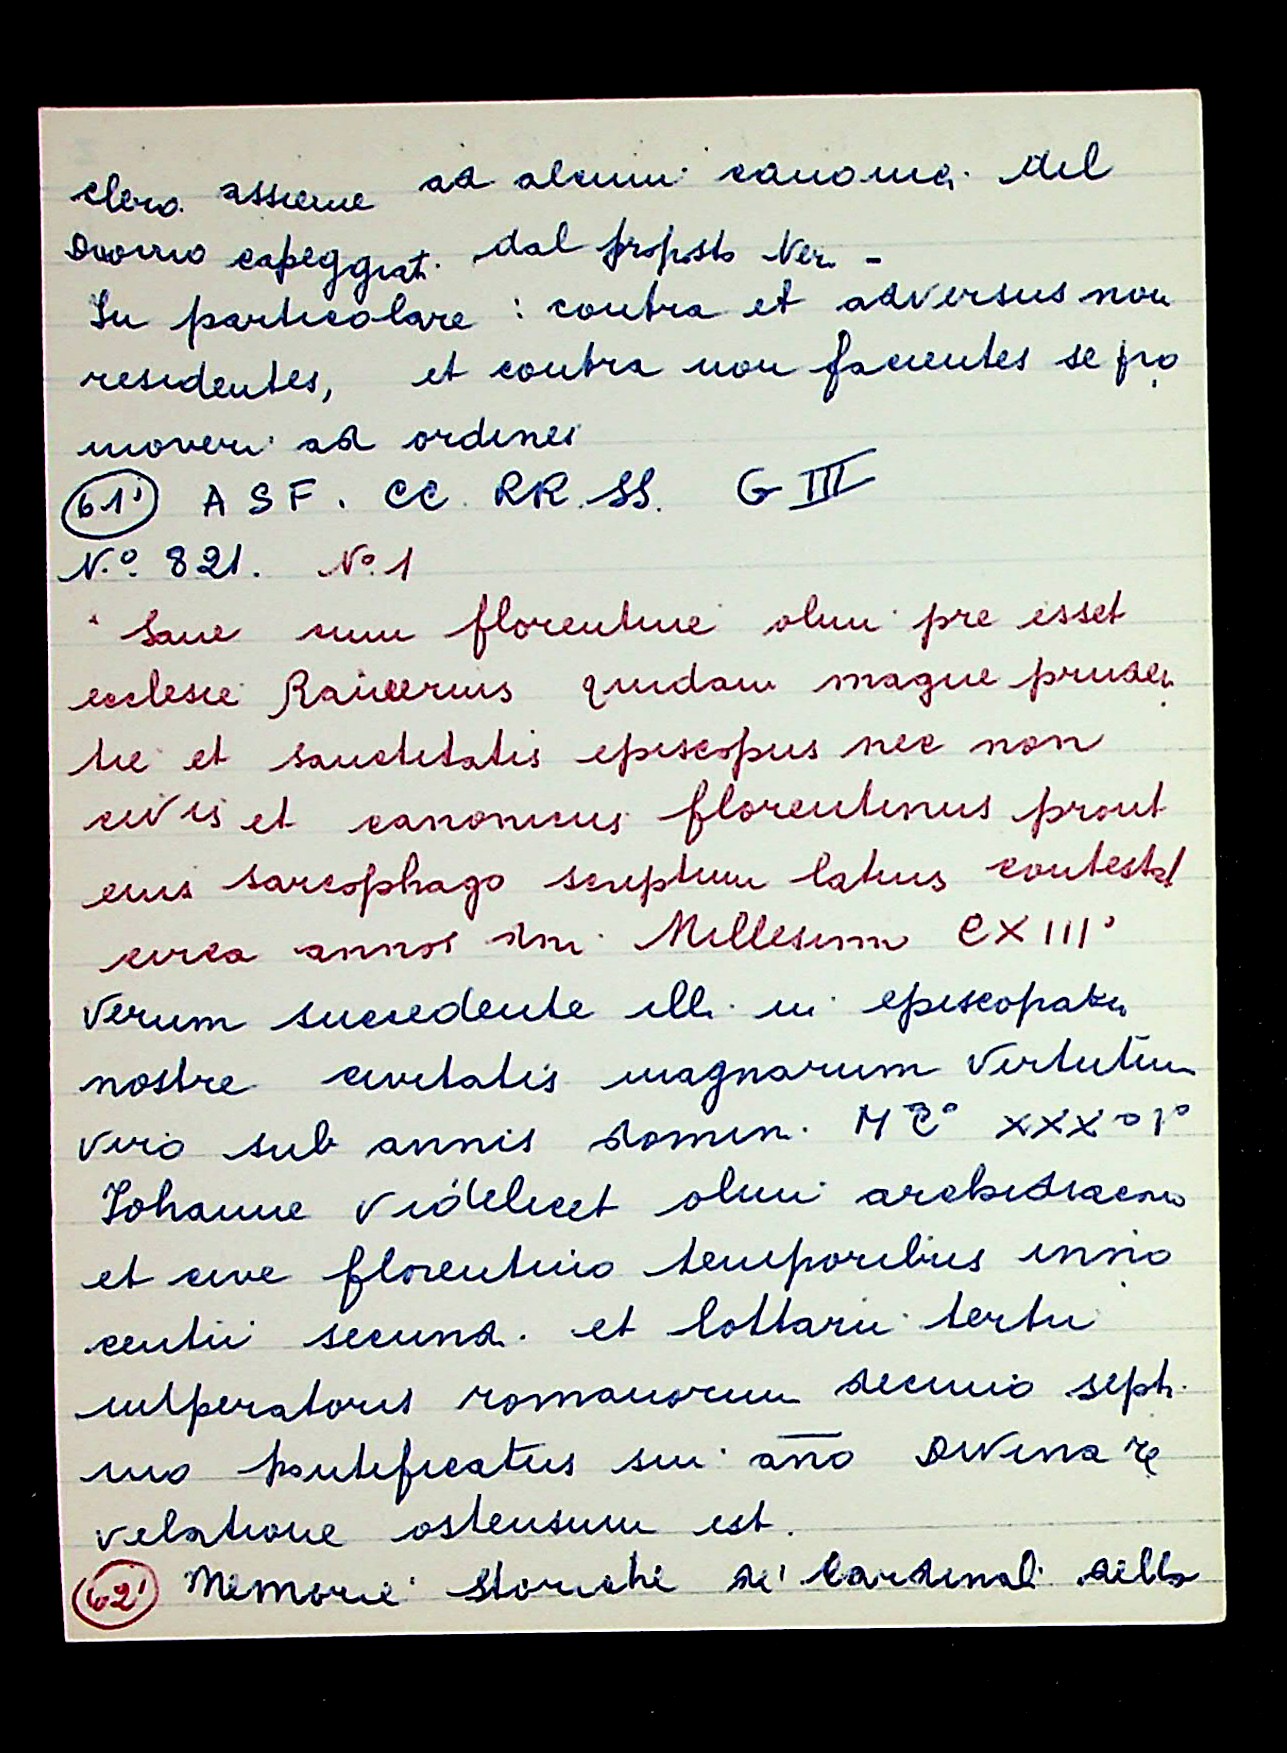 clero assieme ad alcuni canonici del
Duomo capeggiati dal proposto Ver. -
In particolare : contra et adversus non
residentes, et contra non facientes se pro
moveri ad ordines
61' A S F. CC. RR. SS. G III
N.º 821. Nº. 1
" Sane cum florentine olim pre esset
ecclesie Rainerius quidam magne pruden
tie et sanctitatis episcopus nec non
civis et canonicus florentinus prout
eius sarcophago scriptum latius contestat
circa annos dni Millesimo CXIIIº
Verum succedente illi in episcopatu
nostre civitatis magnarum virtutum
viro sub annis domini MCº XXXº Iº
Johanne videlicet olim archidiacono
et cive florentino temporibus inno
centii secundi et lottarii tertii
imperatoris romanorum decimo septi
mo pontificatus sui año divina re
velatione ostensum est.
62' Memorie storiche de' Cardinali della